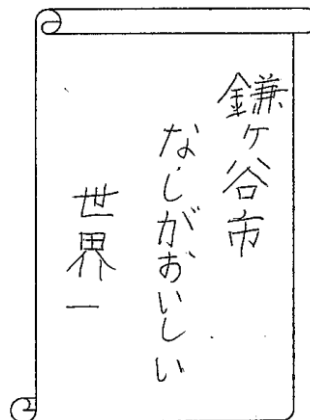 鎌ヶ谷市
なしがおいしい
世界一